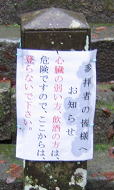 参拝者の皆様へ
お知らせ
心臓の弱い方、飲酒の方は、
危険ですので、ここからは、
登らないで下さい。